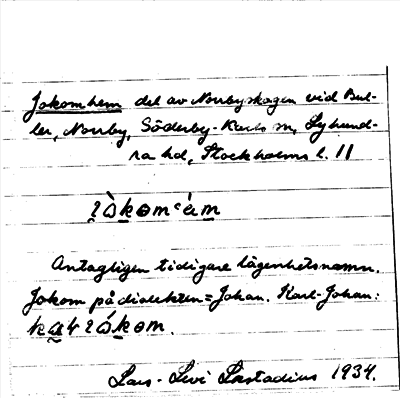 Jokomhem del av Norrbyskogen vid Bul-
ler, Norrby, Söderby-Karls sn, Lyhund-
ra hd, Stockholms l. 11
Antagligen tidigare lägenhetsnamn.
Jokom på dialekten = Johan. Karl-Johan:
Lars-Levi Læstadius 1934.